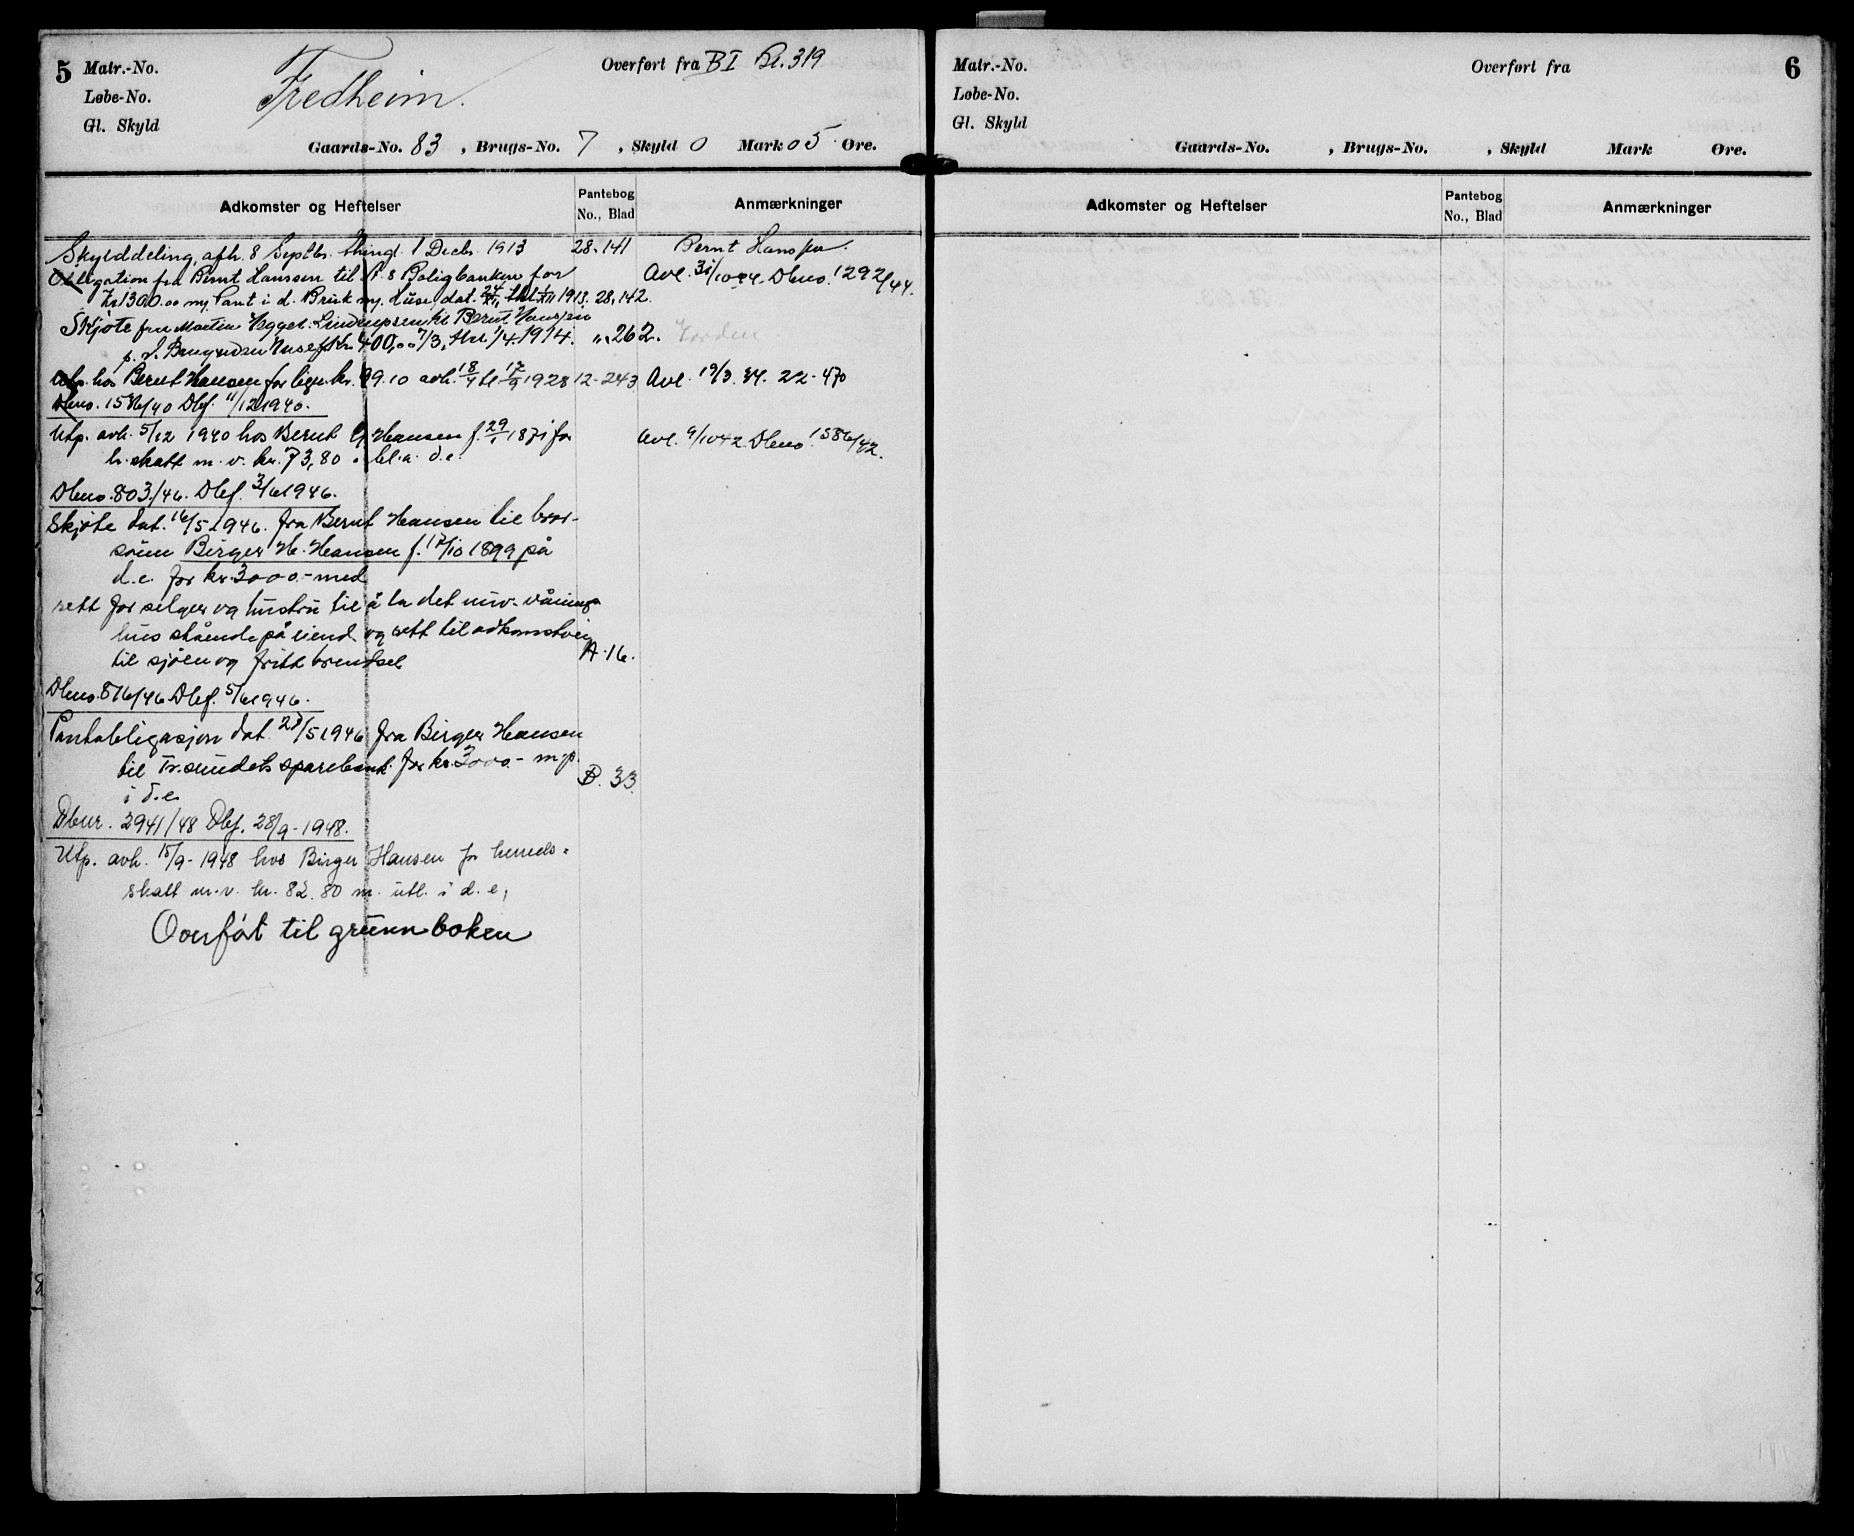 5 Matr.-No. Overført fra BI Bl. 319
Løbe-No. Fredheim.
Gl. Skyld
Gaards-No. 83, Brugs-No. 7, Skyld 0 Mark 05 Øre.
Adkomster og Heftelser Pantebog No., Blad Anmærkninger
Skylddeling, afh. 8 Septbr. thingl. 1 Decbr. 1913 28-141 Bernt Hanssen.
Obligation fra Bernt Hanssen til A.s Boligbanken for Avl. 31/10 44. Dbno. 1292/44.
Kr 1300.00 m/ Pant i d. Bruk m. Huse, dat. 24/11 thl 1/12 1913. 28,142.
Skjøte fra Martin til Bernt Hanssen
Kr. 400,00 7/3, thl. 1/4 1914. " 262.
Utp. hos Bernt Hansen for lign. kr. 99.10 avh. 18/4 tl 17/9 1928 12-243 Avl. 19/3. 34. 22-470
Dbno. 1536/40 Dbf. 11/12 1940.
Utp. avh. 5/12 1940 hos Bernt Hansen f. 29/1 1871 for Avl. 9/10 42 Dbno. 1586/42.
h. skatt m.v. kr. 73,80 i bl.a. d.e.
Dbno. 803/46. Dbf. 3/6 1946.
Skjøte dat. 16/5 1946. fra Bernt Hansen til bror-
sønn Birger H. Hansen f. 17/10 1899 på
d.e. for kr. 3000.- med
rett for selger og hustru til å la det nuv. vånings
hus stående på eiend. og rett til adkomstvei
til sjøen og fritt brendsel A. 16.
Dbno. 816/46 Dbf. 5/6 1946.
Pantobligasjon dat. 28/5 1946 fra Birger Hansen
til Tr.sundets sparebank for kr. 3000.- m.p.
i d.e. B. 33.
Dbnr. 2941/48 Dbf. 28/9-1948.
Utp. avh. 15/9-1948 hos Birger Hansen for herreds-
skatt m.v. kr. 82.80 m. utl. i d.e.
Overført til grunnboken
Matr.-No. Overført fra 6
Løbe-No.
Gl. Skyld
Gaards-No. , Brugs-No. , Skyld Mark Øre.
Adkomster og Heftelser Pantebog No., Blad Anmærkninger